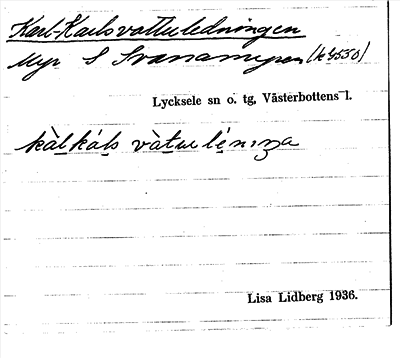 Karl-Karlsvattuledningen
Myr S Svanamyran
Lycksele sn o. tg, Västerbottens l.
kàl káls vàtu léniŋa
Lisa Lidberg 1936.